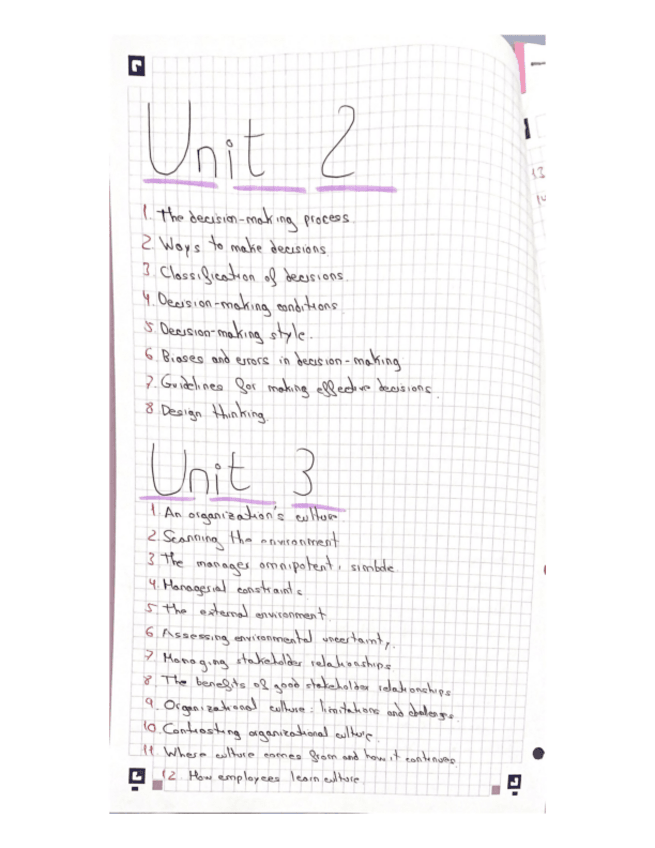 Unit 2
1. The decision-making process.
2. Ways to make decisions
3. Classification of decisions.
4. Decision-making conditions
5. Decision-making style.
6. Biases and errors in decision-making
7. Guidelines for making effective decisions.
8. Design thinking.
Unit 3
1. An organization's culture.
2. Scanning the environment
3. The manager omnipotent,
4. Managerial constraints
5. The external environment.
6. Assessing environmental uncertainty.
7. Managing stakeholder relationships
8. The benefits of good stakeholder relationships
9. Organizational culture: limitations and challenges.
10. Contrasting organizational culture.
11. Where culture comes from and how it continues.
12. How employees learn culture
13
14